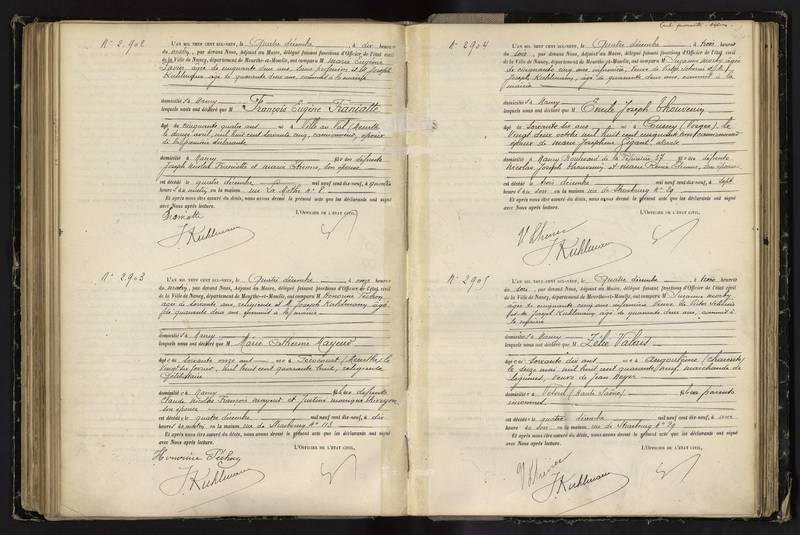 N° 2.902
L'AN MIL NEUF CENT DIX-NEUF, le Quatre décembre à dix heures
du matin, par devant Nous, Adjoint au Maire, délégué faisant fonctions d'Officier de l'état civil
de la Ville de Nancy, département de Meurthe-et-Moselle, ont comparu M Marie Eugénie
âgée de cinquante deux ans, sans profession et M. Joseph
Kuhlmann, âgé de quarante deux ans, commis à la mairie
domiciliés à Nancy
lesquels nous ont déclaré que M François Eugène Franiatte
âgé de cinquante quatre ans né à Ville au Val (Meurthe
le douze avril mil huit cent soixante cinq, camionneur, époux
de la première déclarante
domicilié à Nancy fils des défunts
Joseph Nicolas Franiatte et Marie Etienne, son épouse
est décédé le quatre décembre mil neuf cent dix-neuf, à
heures du matin, en la maison, rue La Mothe N° 8
Et après nous être assuré du décès, nous avons dressé le présent acte que les déclarants ont signé
avec Nous après lecture.
Franiatte L'OFFICIER DE L'ÉTAT CIVIL,
J. Kuhlmann
N° 2903
L'AN MIL NEUF CENT DIX-NEUF, le Quatre décembre à onze heures
du matin, par devant Nous, Adjoint au Maire, délégué faisant fonctions d'Officier de l'état civil
de la Ville de Nancy, département de Meurthe-et-Moselle, ont comparu M Honorine
âgée de soixante ans, religieuse et M. Joseph Kuhlmann, âgé
de quarante deux ans, commis à la mairie
domiciliés à Nancy
lesquels nous ont déclaré que M Marie Catherine Mayeur
âgée de soixante onze ans née à Frécourt (Meurthe) le
vingt février, mil huit cent quarante huit, religieuse
Célibataire
domiciliée à Nancy fille des défunts
Claude Nicolas François Mayeur et Justine Monique
son épouse
est décédée le quatre décembre mil neuf cent dix-neuf, à dix
heures du matin, en la maison, rue de Strasbourg N° 113
Et après nous être assuré du décès, nous avons dressé le présent acte que les déclarants ont signé
avec Nous après lecture.
Honorine L'OFFICIER DE L'ÉTAT CIVIL,
J. Kuhlmann
N° 2904
L'AN MIL NEUF CENT DIX-NEUF, le Quatre décembre à trois heures
du soir, par devant Nous, Adjoint au Maire, délégué faisant fonctions d'Officier de l'état civil
de la Ville de Nancy, département de Meurthe-et-Moselle, ont comparu M Suzanne
de cinquante cinq ans infirmière, veuve de Victor et M.
Joseph Kuhlmann, âgé de quarante deux ans, commis à la
mairie
domiciliés à Nancy
lesquels nous ont déclaré que M Emile Joseph Thouvenin
âgé de Soixante dix ans né à Coussey (Vosges), le
époux de Marie Joséphine Gigant
domicilié à Nancy Boulevard de la Pépinière 37 fils des défunts
Nicolas Joseph Thouvenin et Marie son épouse
est décédé le trois décembre mil neuf cent dix-neuf, à sept
heures du soir en la maison, rue de Strasbourg N° 29
Et après nous être assuré du décès, nous avons dressé le présent acte que les déclarants ont signé
avec Nous après lecture.
L'OFFICIER DE L'ÉTAT CIVIL,
J. Kuhlmann
N° 2905
L'AN MIL NEUF CENT DIX-NEUF, le Quatre décembre à trois heures
du soir, par devant Nous, Adjoint au Maire, délégué faisant fonctions d'Officier de l'état civil
de la Ville de Nancy, département de Meurthe-et-Moselle, ont comparu M Suzanne
âgée de cinquante cinq ans infirmière veuve de Victor
et de Joseph Kuhlmann, âgé de quarante deux ans, commis à
la mairie
domiciliés à Nancy
lesquels nous ont déclaré que M Zélie Valais
âgée de Soixante dix ans née à Angoulême (Charente)
le mai mil huit cent quarante neuf, marchande de
légumes, veuve de Jean Boyer
domiciliée à (Haute Saône) fille de parents
est décédée le quatre décembre mil neuf cent dix-neuf, à une
heure du soir en la maison, rue de Strasbourg N° 29
Et après nous être assuré du décès, nous avons dressé le présent acte que les déclarants ont signé
avec Nous après lecture.
L'OFFICIER DE L'ÉTAT CIVIL,
J. Kuhlmann